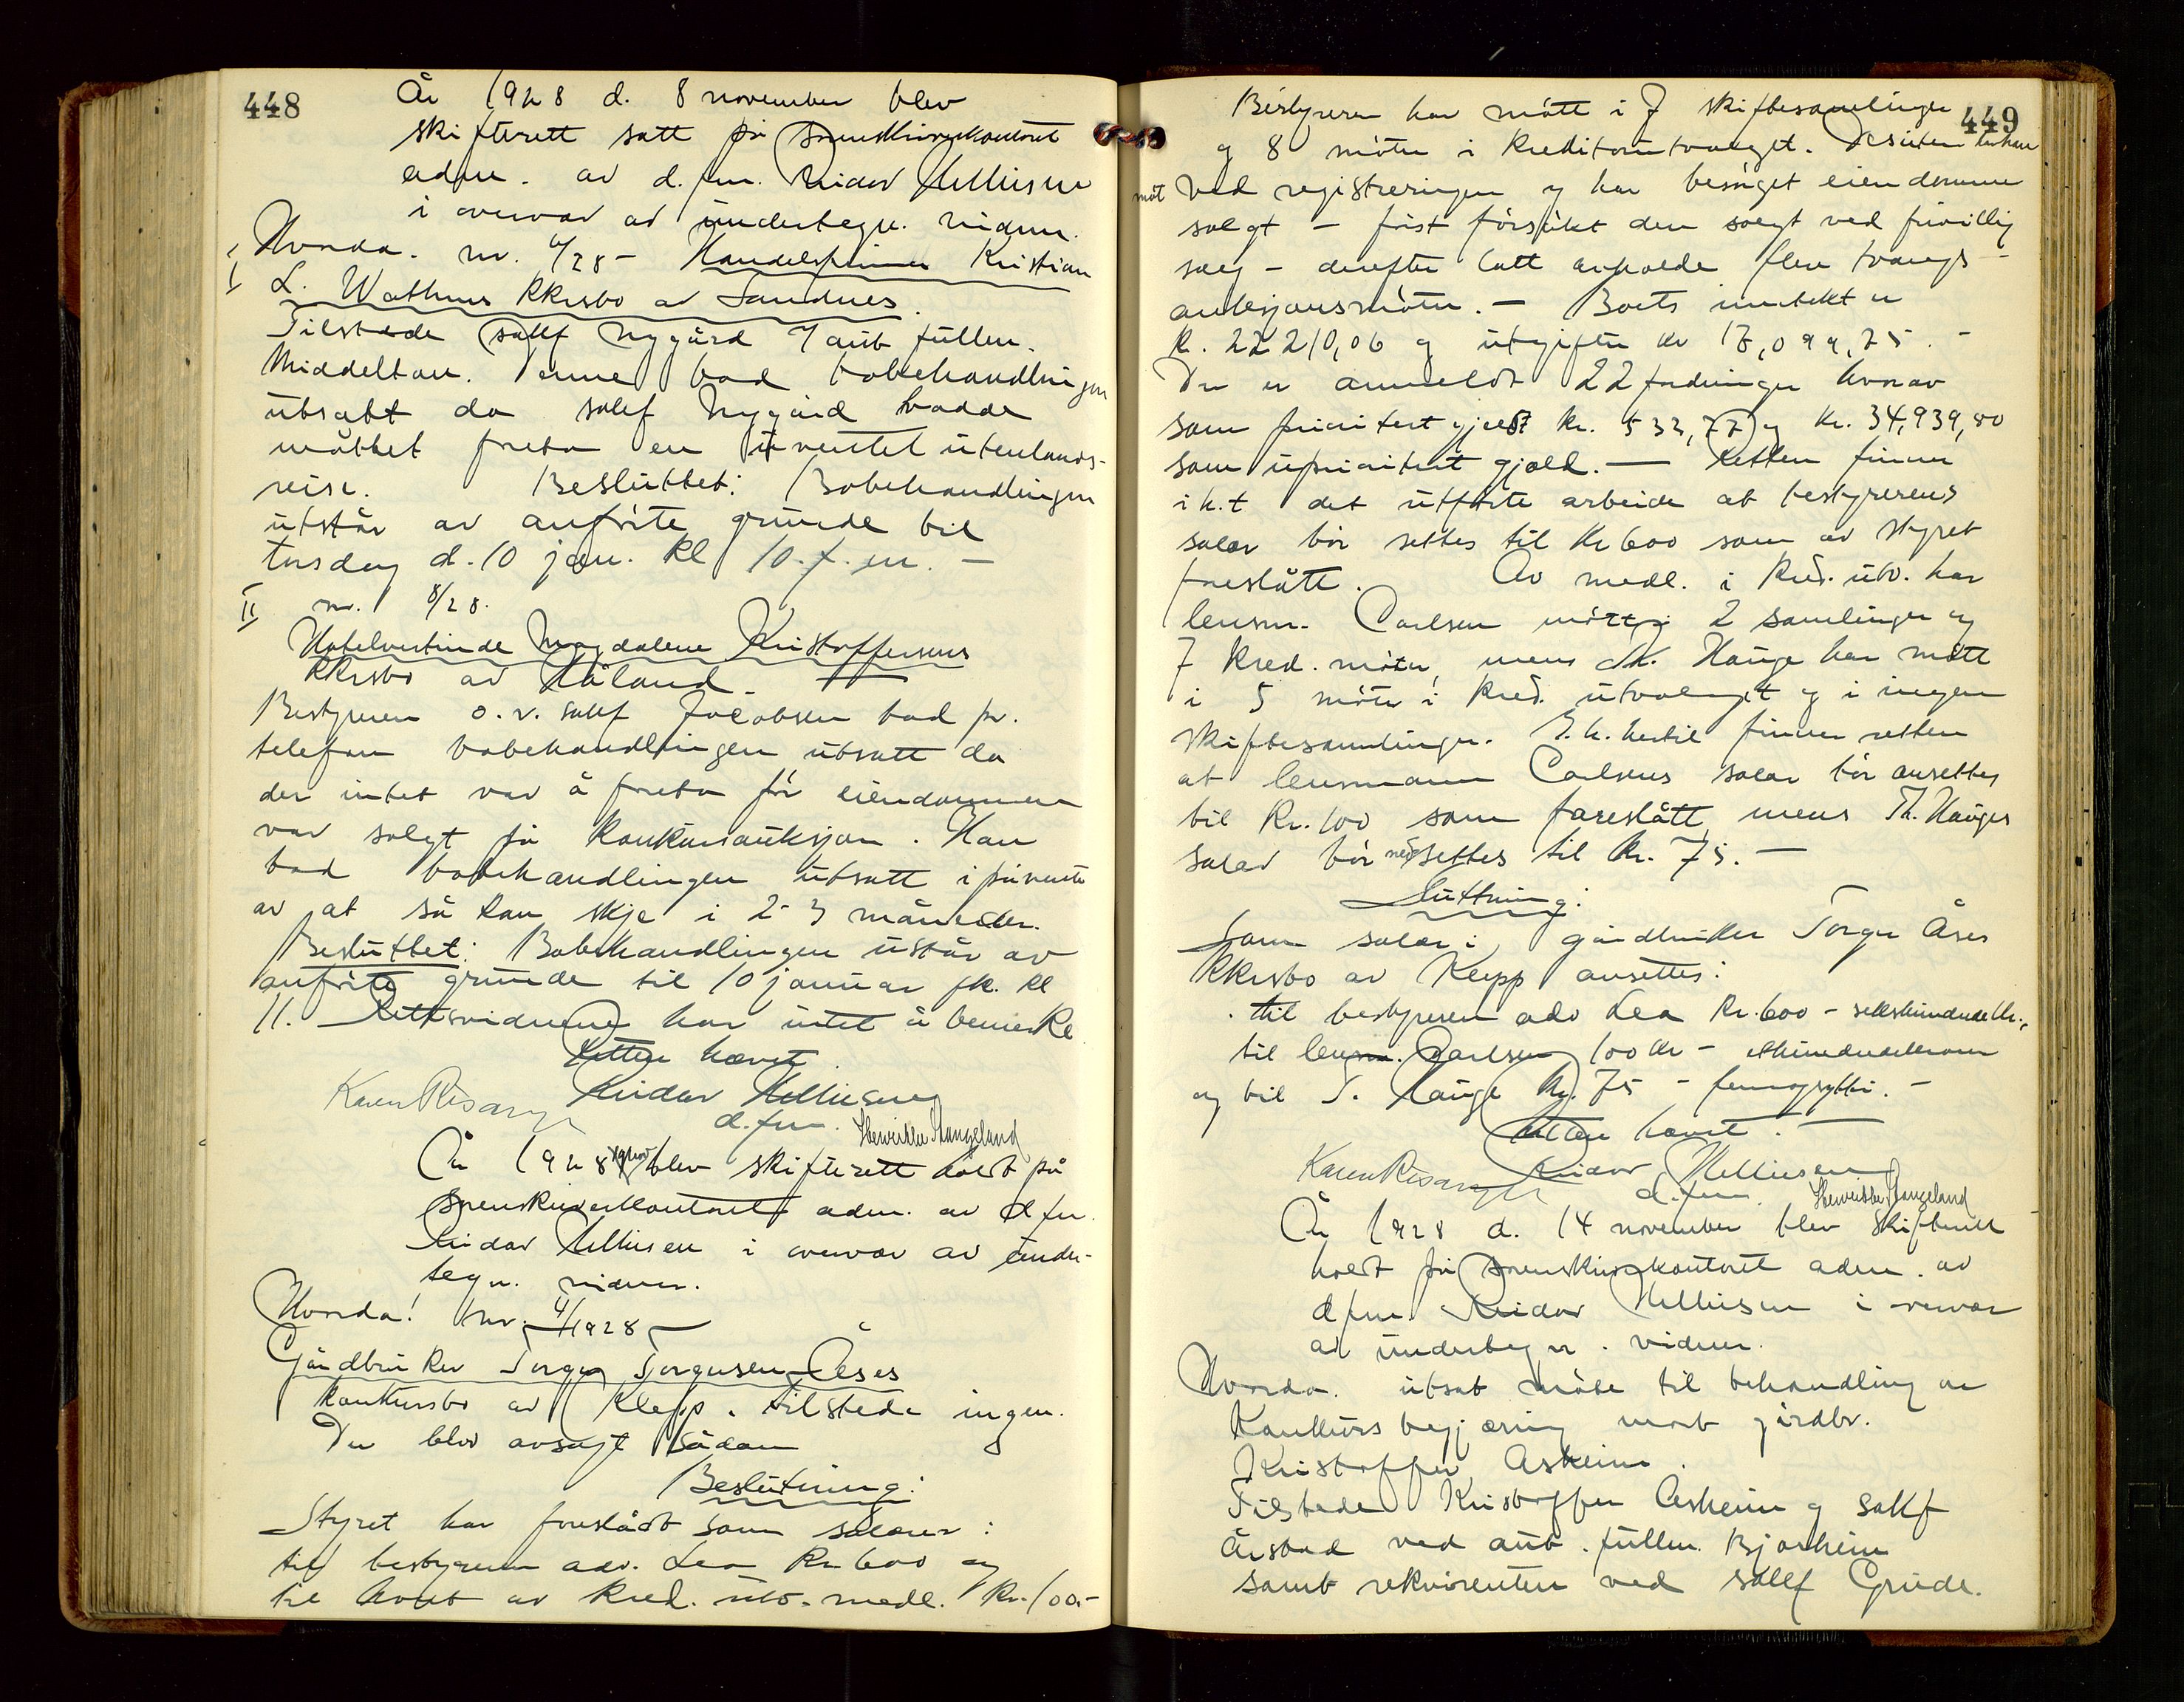 448
År 1928 d. 8 november blev
skifterett satt på sorenskriverkontoret
adm. av d.fm. Reidar Mellesen
i overvær av undertegn. vidner.
Hvorda. nr. 6/28 - Handelsfirmaet Kristian
I L. Wathnes kkrsbo av Sandnes.
Tilstede sakf Nygård v/ aut fullm.
Middelton. Denne bad bobehandlingen
utsatt da sakf Nygård hadde
måttet foreta en uventet utenlands-
reise. Besluttet: Bobehandlingen
utstår av anførte grunde til
torsdag d. 10 jan. kl 10 f.m. -
II nr. 8/28.
Hotelvertinde Magdalene Kristoffersens
kkrsbo av Håland.
Bestyreren o.r.sakf Jacobsen bad pr.
telefon bobehandlingen utsatt da
der intet var å foreta før eiendommen
var solgt på konkursauksjon. Han
bad bobehandlingen utsatt i påvente
av at så kan skje i 2-3 måneder.
Besluttet: Bobehandlingen utstår av
anførte grunde til 10 januar fk. kl
11. Rettsvidnene har intet å bemerke
Retten hævet.
Karen Risang Reidar Mellesen
d.fm. Henrikke Stangeland
År 1928 blev skifterett holdt på
sorenskriverkontoret adm. av d fm.
Reidar Mellesen i overvær av under-
tegn. vidner.
Hvorda! Nr. 4/1928
Gårdbruker Torger Torgersen Åses
konkursbo av Klepp. Tilstede ingen.
Der blev avsagt sådan
Beslutning:
Styret har foreslått som salærer:
til bestyreren adv. Lea kr. 600 og
til hvert av kred. utv. medl. kr. 100.-
449
Bestyreren har møtt i 7 skiftesamlinger
og 8 møter i kreditorutvalget. Desuten har han
møt ved registreringen og har besørget eiendommen
solgt - først forsøkt den solgt ved frivillig
salg - derefter latt avholde flere tvangs-
auksjonsmøter. - Boets inntekt er
kr. 22210,06 og utgifter kr 17,099,75. -
Der er anmeldt 22 fordringer hvorav
som prioritert gjeld kr. 533,77 og kr. 34,939,80
som uprioritert gjeld. - Retten finner
i h.t det utførte arbeide at bestyrerens
salær bør settes til kr 600 som av styret
foreslått. Av medl. i kred. utv. har
lensm. Carlsen møtt i 2 samlinger og
7 kred. møter, mens Th. Hauge har møtt
i 5 møter i kred. utvalget og i ingen
skiftesamlinger. I. h. hertil finner retten
at lensmann Carlsens salær bør ansettes
til kr. 100 som foreslått mens Th. Hauges
salær bør nedsettes til kr. 75. -
Slutning:
Som salær i gårdbruker Torger Åses
kkrsbo av Klepp ansettes:
til bestyreren adv Lea kr. 600 - sekshundredekr.,
til lensm. Carlsen 100 kr - etthundredekroner
og til T. Hauge kr. 75 - femogsytti. -
Retten hævet. -
Karen Risang Reidar Mellesen
d.fm. Henrikke Stangeland
År 1928 d. 14 november blev skifterett
holdt på sorenskriverkontoret adm. av
d fm Reidar Mellesen i overvær
av undertegn. vidner.
Hvorda. utsat møte til behandling av
konkursbegjæring mot gårdbr.
Kristoffer Asheim.
Tilstede Kristoffer Asheim og sakf
Årstad ved aut. fullm. Bjorheim
samt rekvirenten ved sakf Grude.